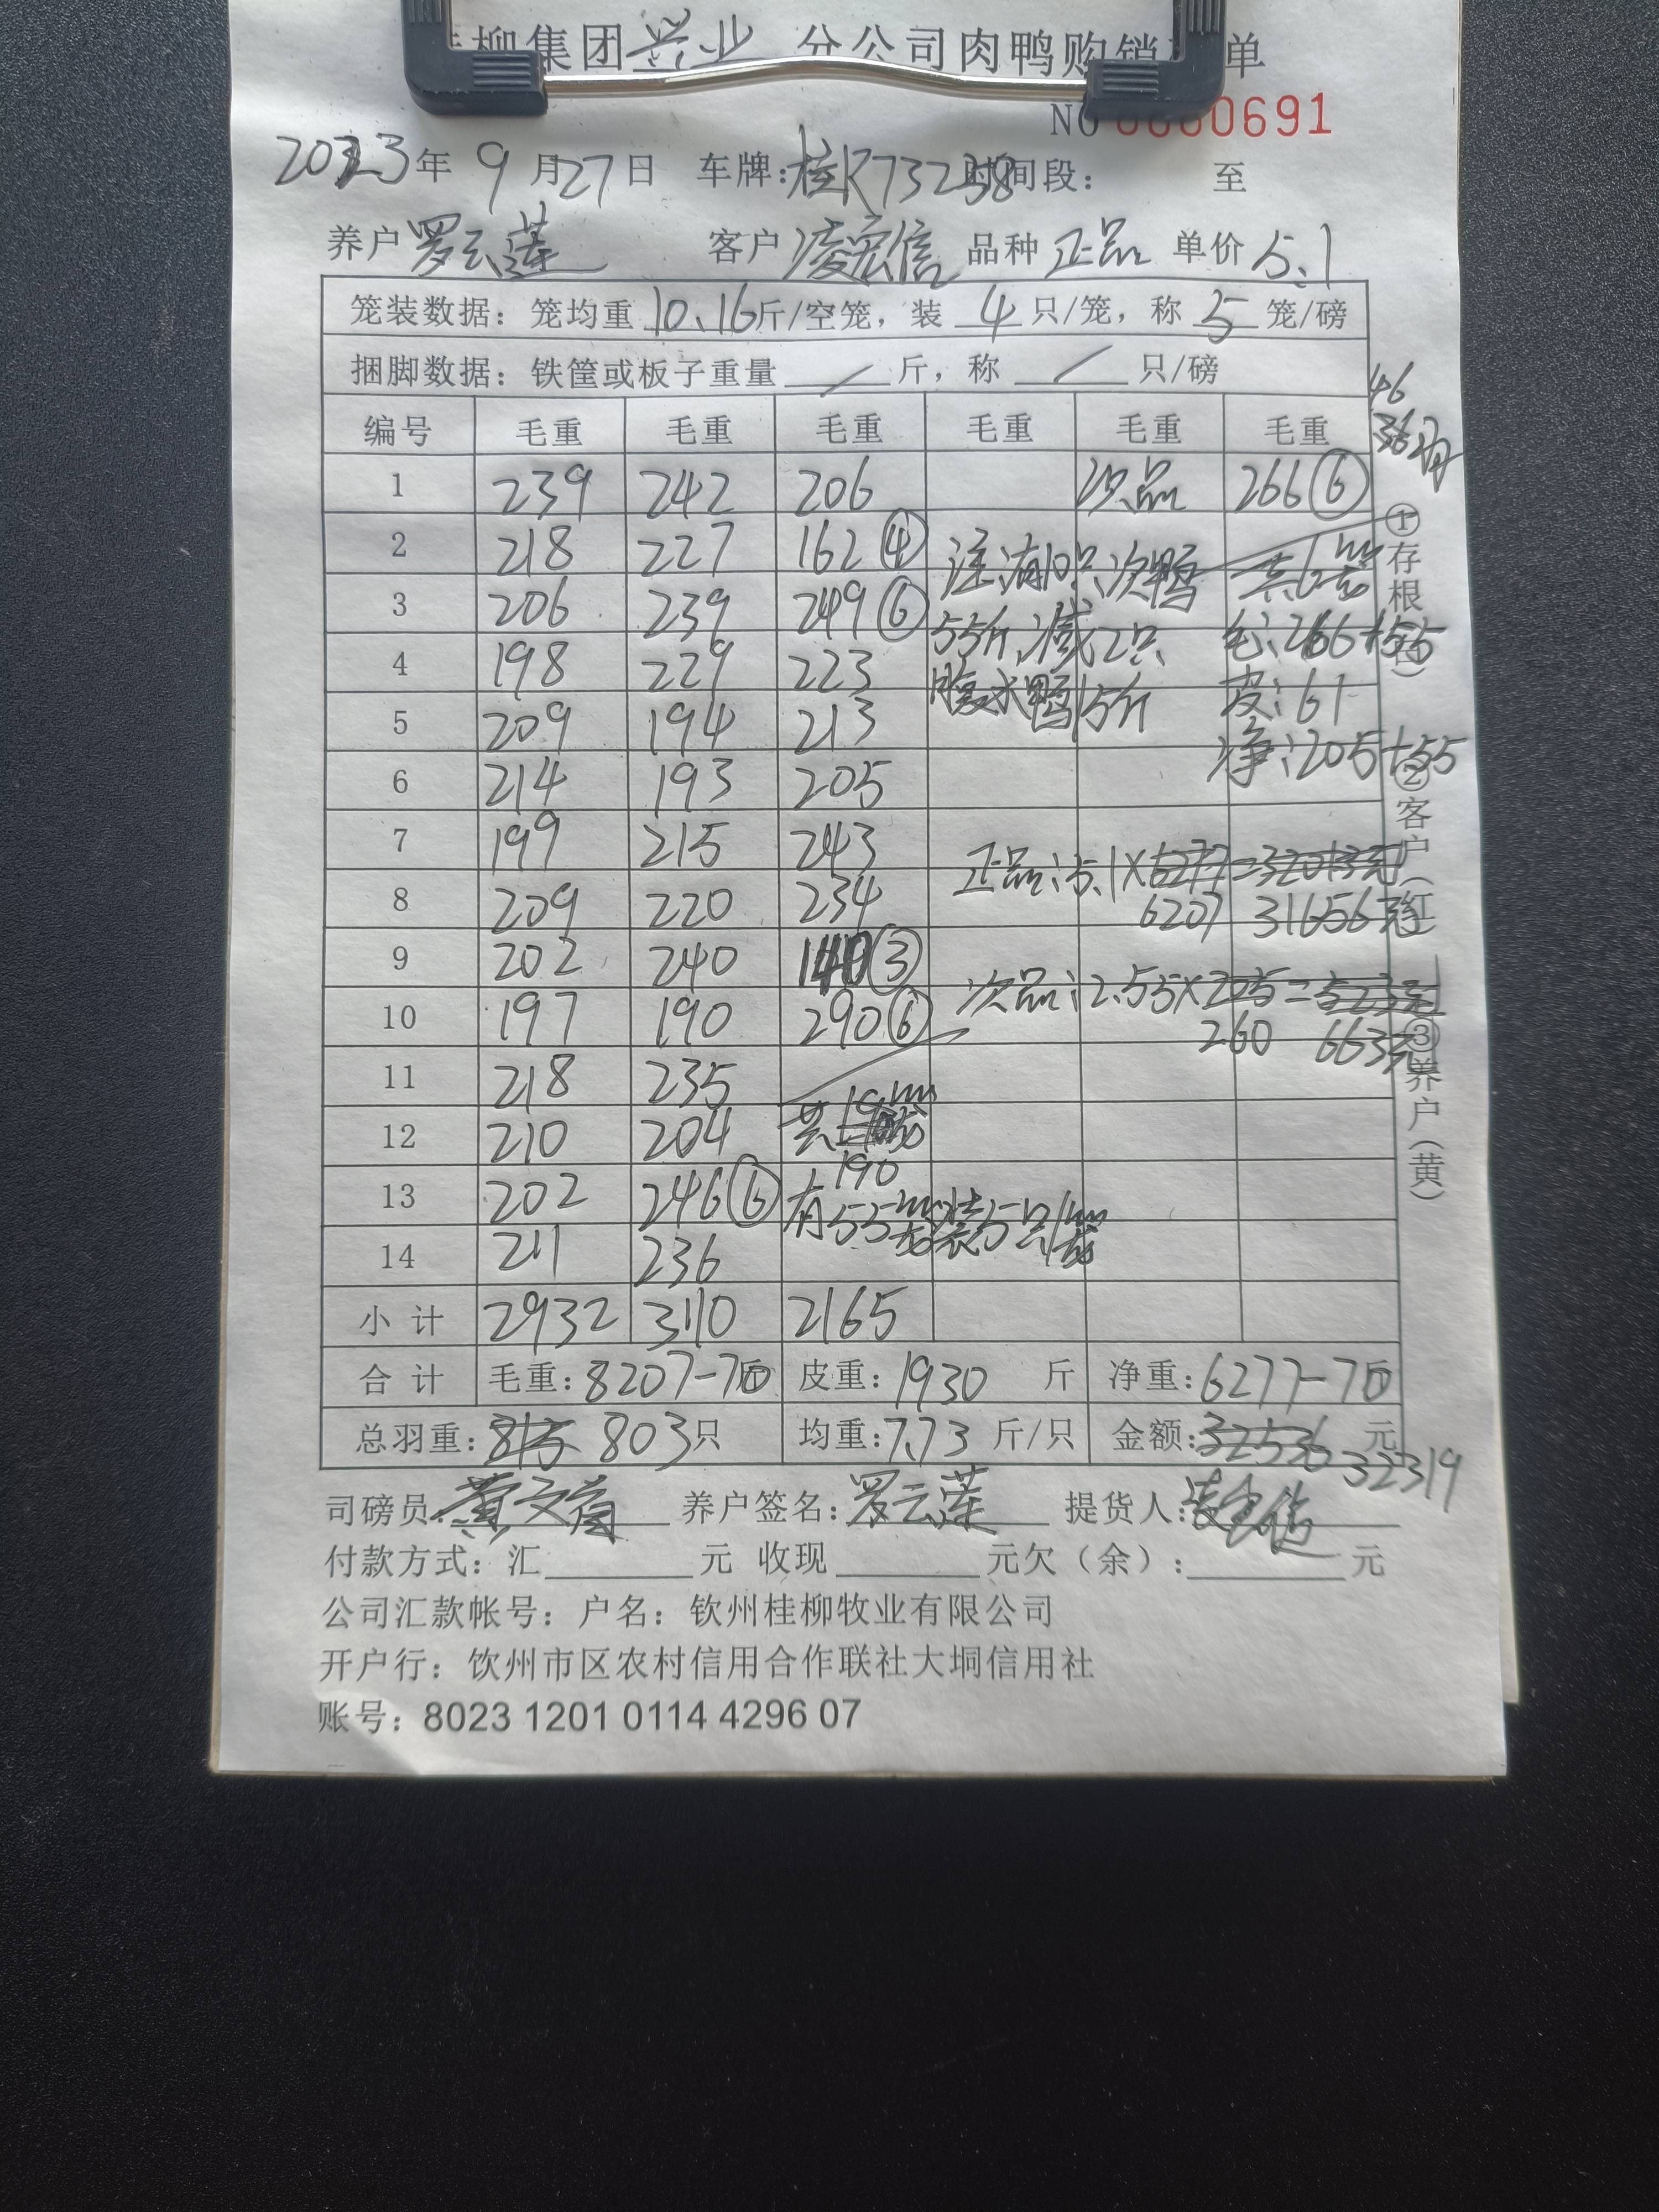 柳集团兴业 分公司肉鸭购销 单
NO 0691
2023年 9月27日 车牌:桂R73238 时间段: 至
养户 罗云莲 客户 凌宏信 品种 正品 单价 5.1
笼装数据: 笼均重 10.16斤/空笼, 装 4 只/笼, 称 5 笼/磅
捆脚数据: 铁筐或板子重量 / 斤, 称 / 只/磅
46
编号 毛重 毛重 毛重 毛重 毛重 毛重
1 239 242 206 次品 266⑥
2 218 227 162④ 注:有10只次鸭 共6笼
3 206 239 249⑥ 55斤,减2只 毛:266+55
4 198 229 223 腹水鸭15斤 皮:61
5 209 194 213 净:205+55
6 214 193 205
7 199 215 243 正品:5.1×6277=32013元
8 209 220 234 6207 31656元
9 202 240 140③
10 197 190 290⑥ 次品:2.55×205=523元
260 663元
11 218 235
12 210 204 共190笼
13 202 246⑥ 有55笼装5只/笼
14 211 236
小计 2932 3110 2165
合计 毛重:8207-70斤 皮重:1930 斤 净重:6277-70斤
总羽重: 815 803只 均重:7.73 斤/只 金额:32536 元
32319
司磅员: 养户签名:罗云莲 提货人:凌宏信
付款方式: 汇 元 收现 元欠(余): 元
公司汇款帐号: 户名: 钦州桂柳牧业有限公司
开户行: 饮州市区农村信用合作联社大垌信用社
账号: 8023 1201 0114 4296 07
①存根(白)
②客户(红)
③养户(黄)